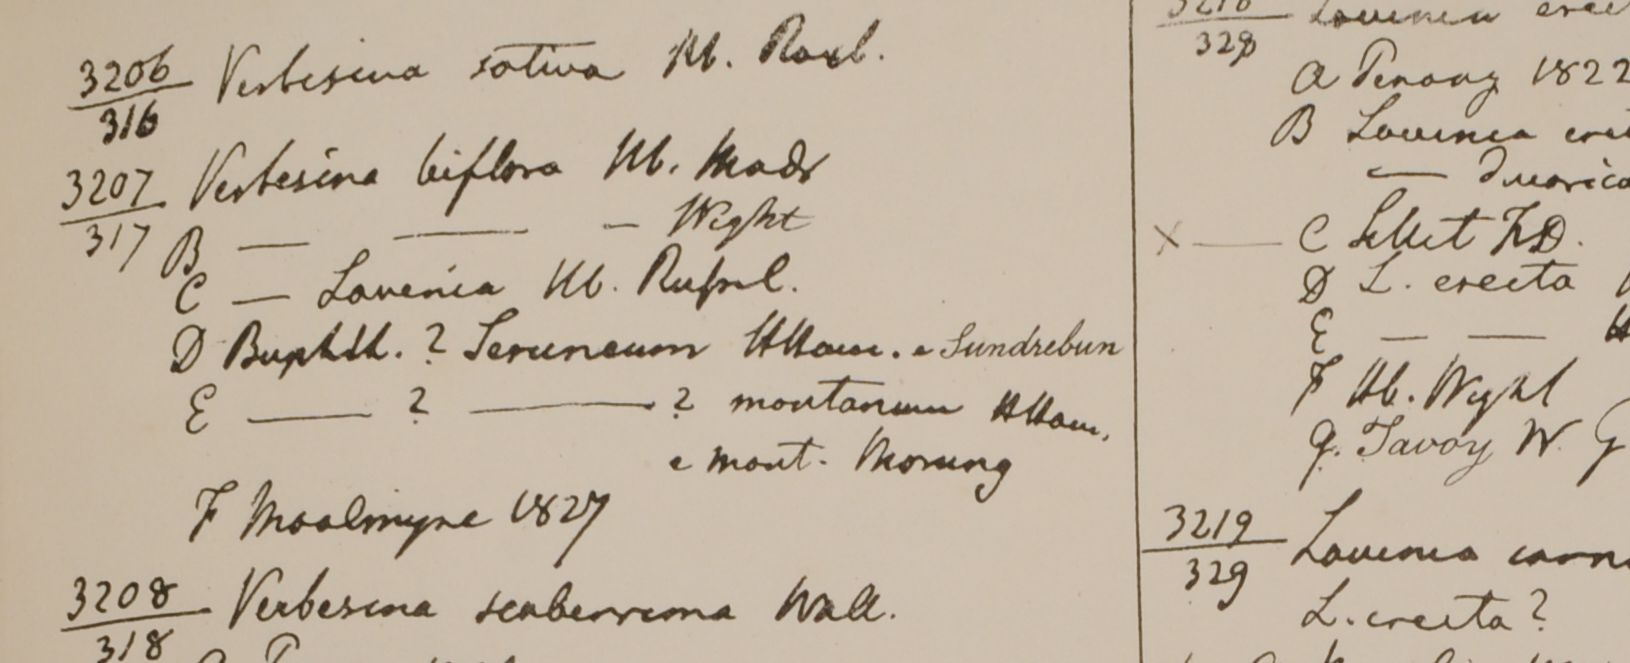 3206 Verbesina sativa Hb. Roxb.
316
3207 Verbesina biflora Hb. Madr
317
B — — — Wight
C — Lavenia Hb. Russel.
D Buphth. ? Seruneum HHam. e Sundrebun
E — ? — ? montanum HHam.
e mont. Morung
F Moalmyne 1827
3208 Verbesina scaberrima Wall.
318
3218 Lavenia erec
328
A Penang 1822
B Lavenia
— divarica
x — C Sillet FD.
D L. erecta
E — —
F Hb. Wight
G. Tavoy W. G
3219 Lavenia carn
329
L. erecta?